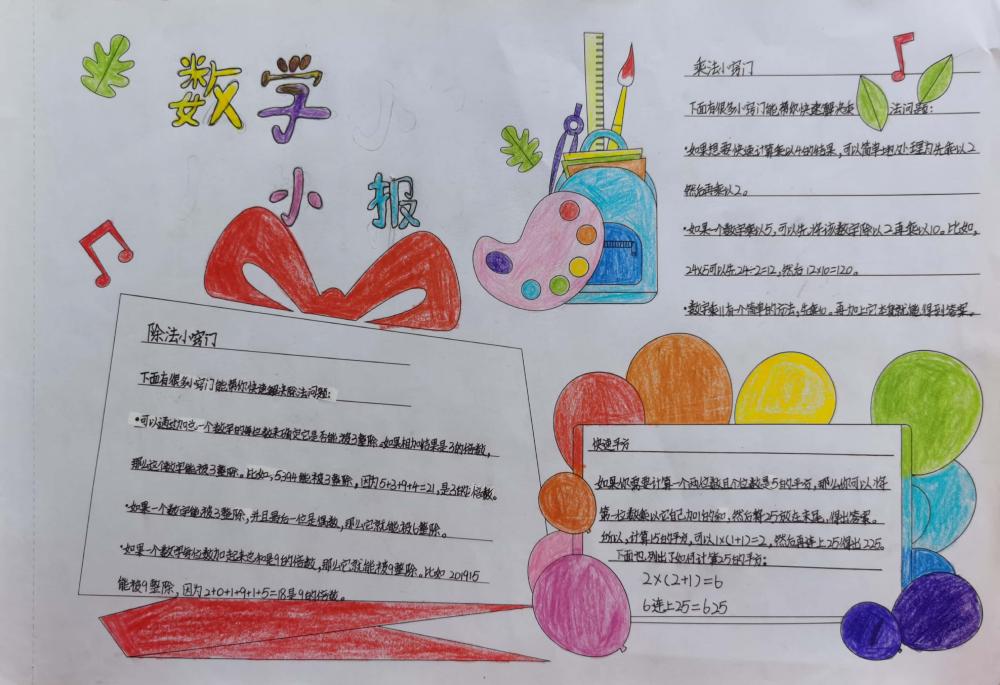 数学
小报
乘法小窍门
下面有很多小窍门能帮你快速解决乘法问题:
·如果想要快速计算乘以4的结果,可以简单地处理为先乘以2
然后再乘以2。
·如果一个数字乘以5,可以先将该数字除以2再乘以10。比如,
24×5可以先24÷2=12,然后12×10=120。
·数字乘11有个简单的方法,先乘10。再加上它本身就能得到答案。
除法小窍门
下面有很多小窍门能帮你快速解决除法问题:
·可以通过加这一个数字的每位数来确定它是否能被3整除。如果相加结果是3的倍数,
那么这个数字能被3整除。比如,5394能被3整除,因为5+3+9+4=21,是3的倍数。
·如果一个数字能被3整除,并且最后一位是偶数,那么它就能被6整除。
·如果一个数字每位数加起来总和是9的倍数,那么它就能被9整除。比如201915
能被9整除,因为2+0+1+9+1+5=18是9的倍数。
快速平方
如果你需要计算一个两位数且个位数是5的平方,那么你可以将
第一位数乘以它自己加1的和,然后将25放在末尾,得出答案。
所以,计算15的平方,可以1×(1+1)=2,然后再连上25得出225。
下面也列出了如何计算25的平方:
2×(2+1)=6
6连上25=625